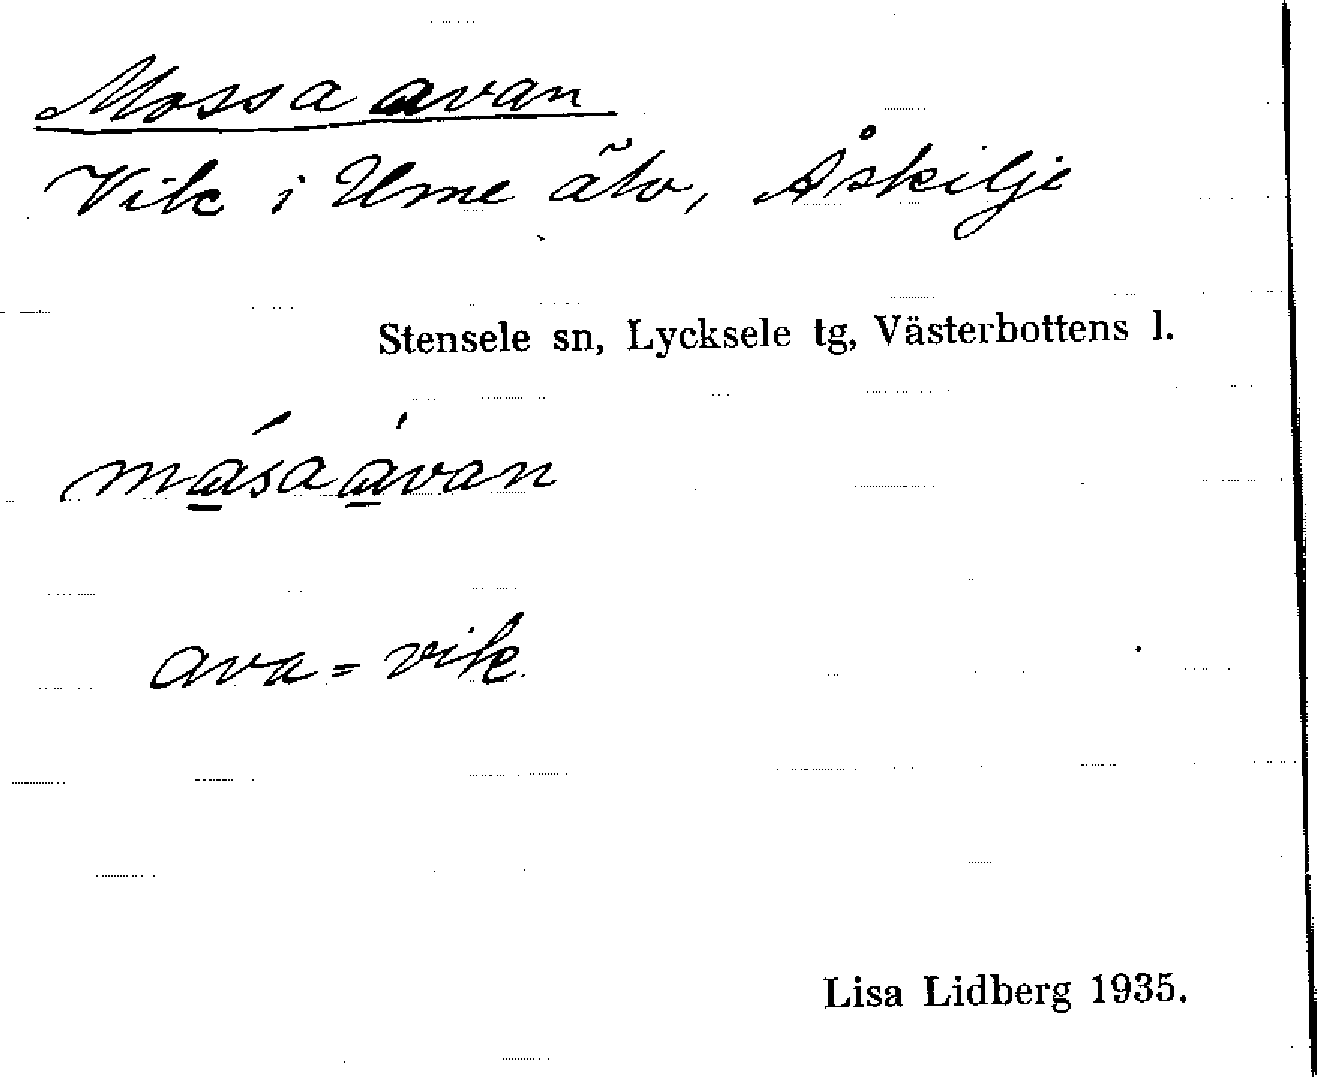 Mossaavan
Vik i Ume älv, Åskilje
Stensele sn, Lycksele tg, Västerbottens l.
má̱saá̱van
ava = vik.
Lisa Lidberg 1935.